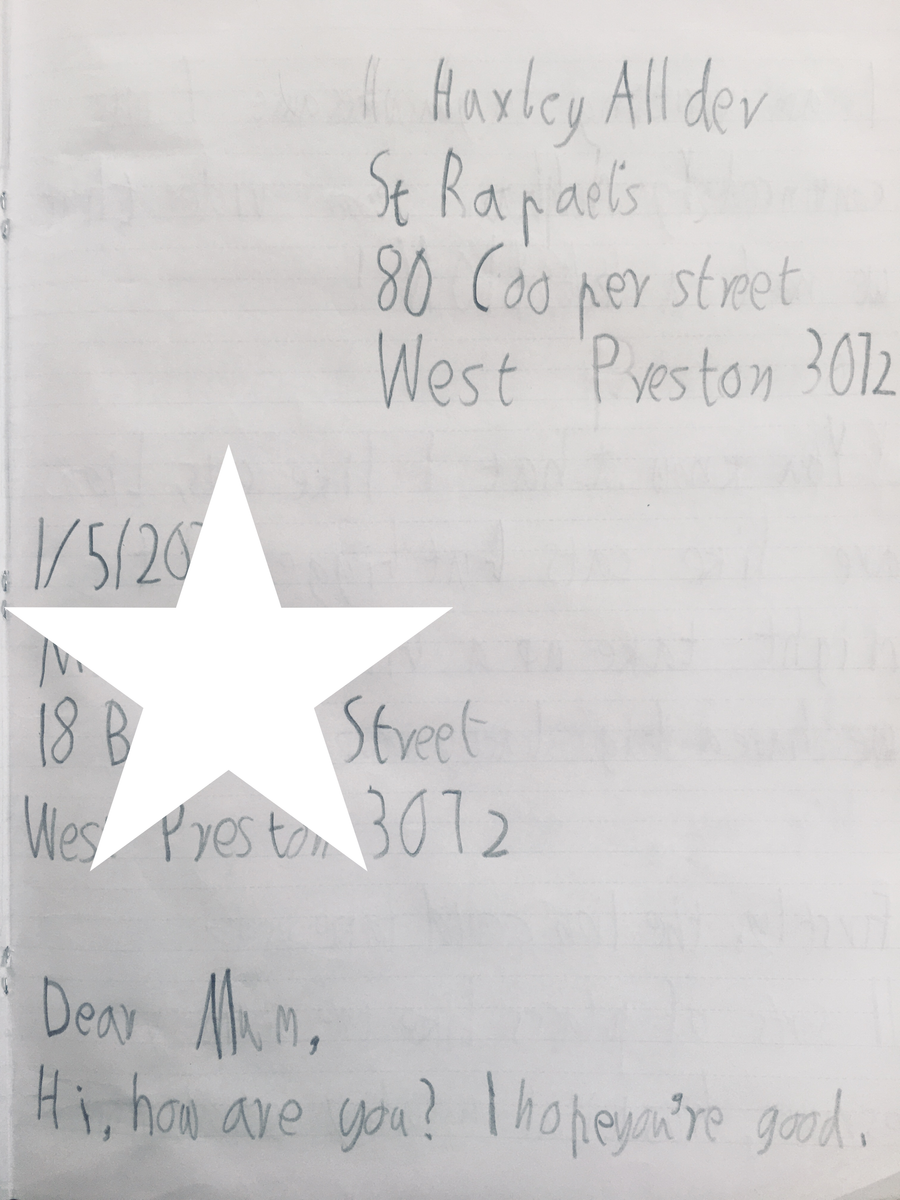 Huxley Allder
St Rapael's
80 Cooper street
West Preston 3072
1/5/20
18 Street
West Preston 3072
Dear Mum,
Hi, how are you? I hope you're good.